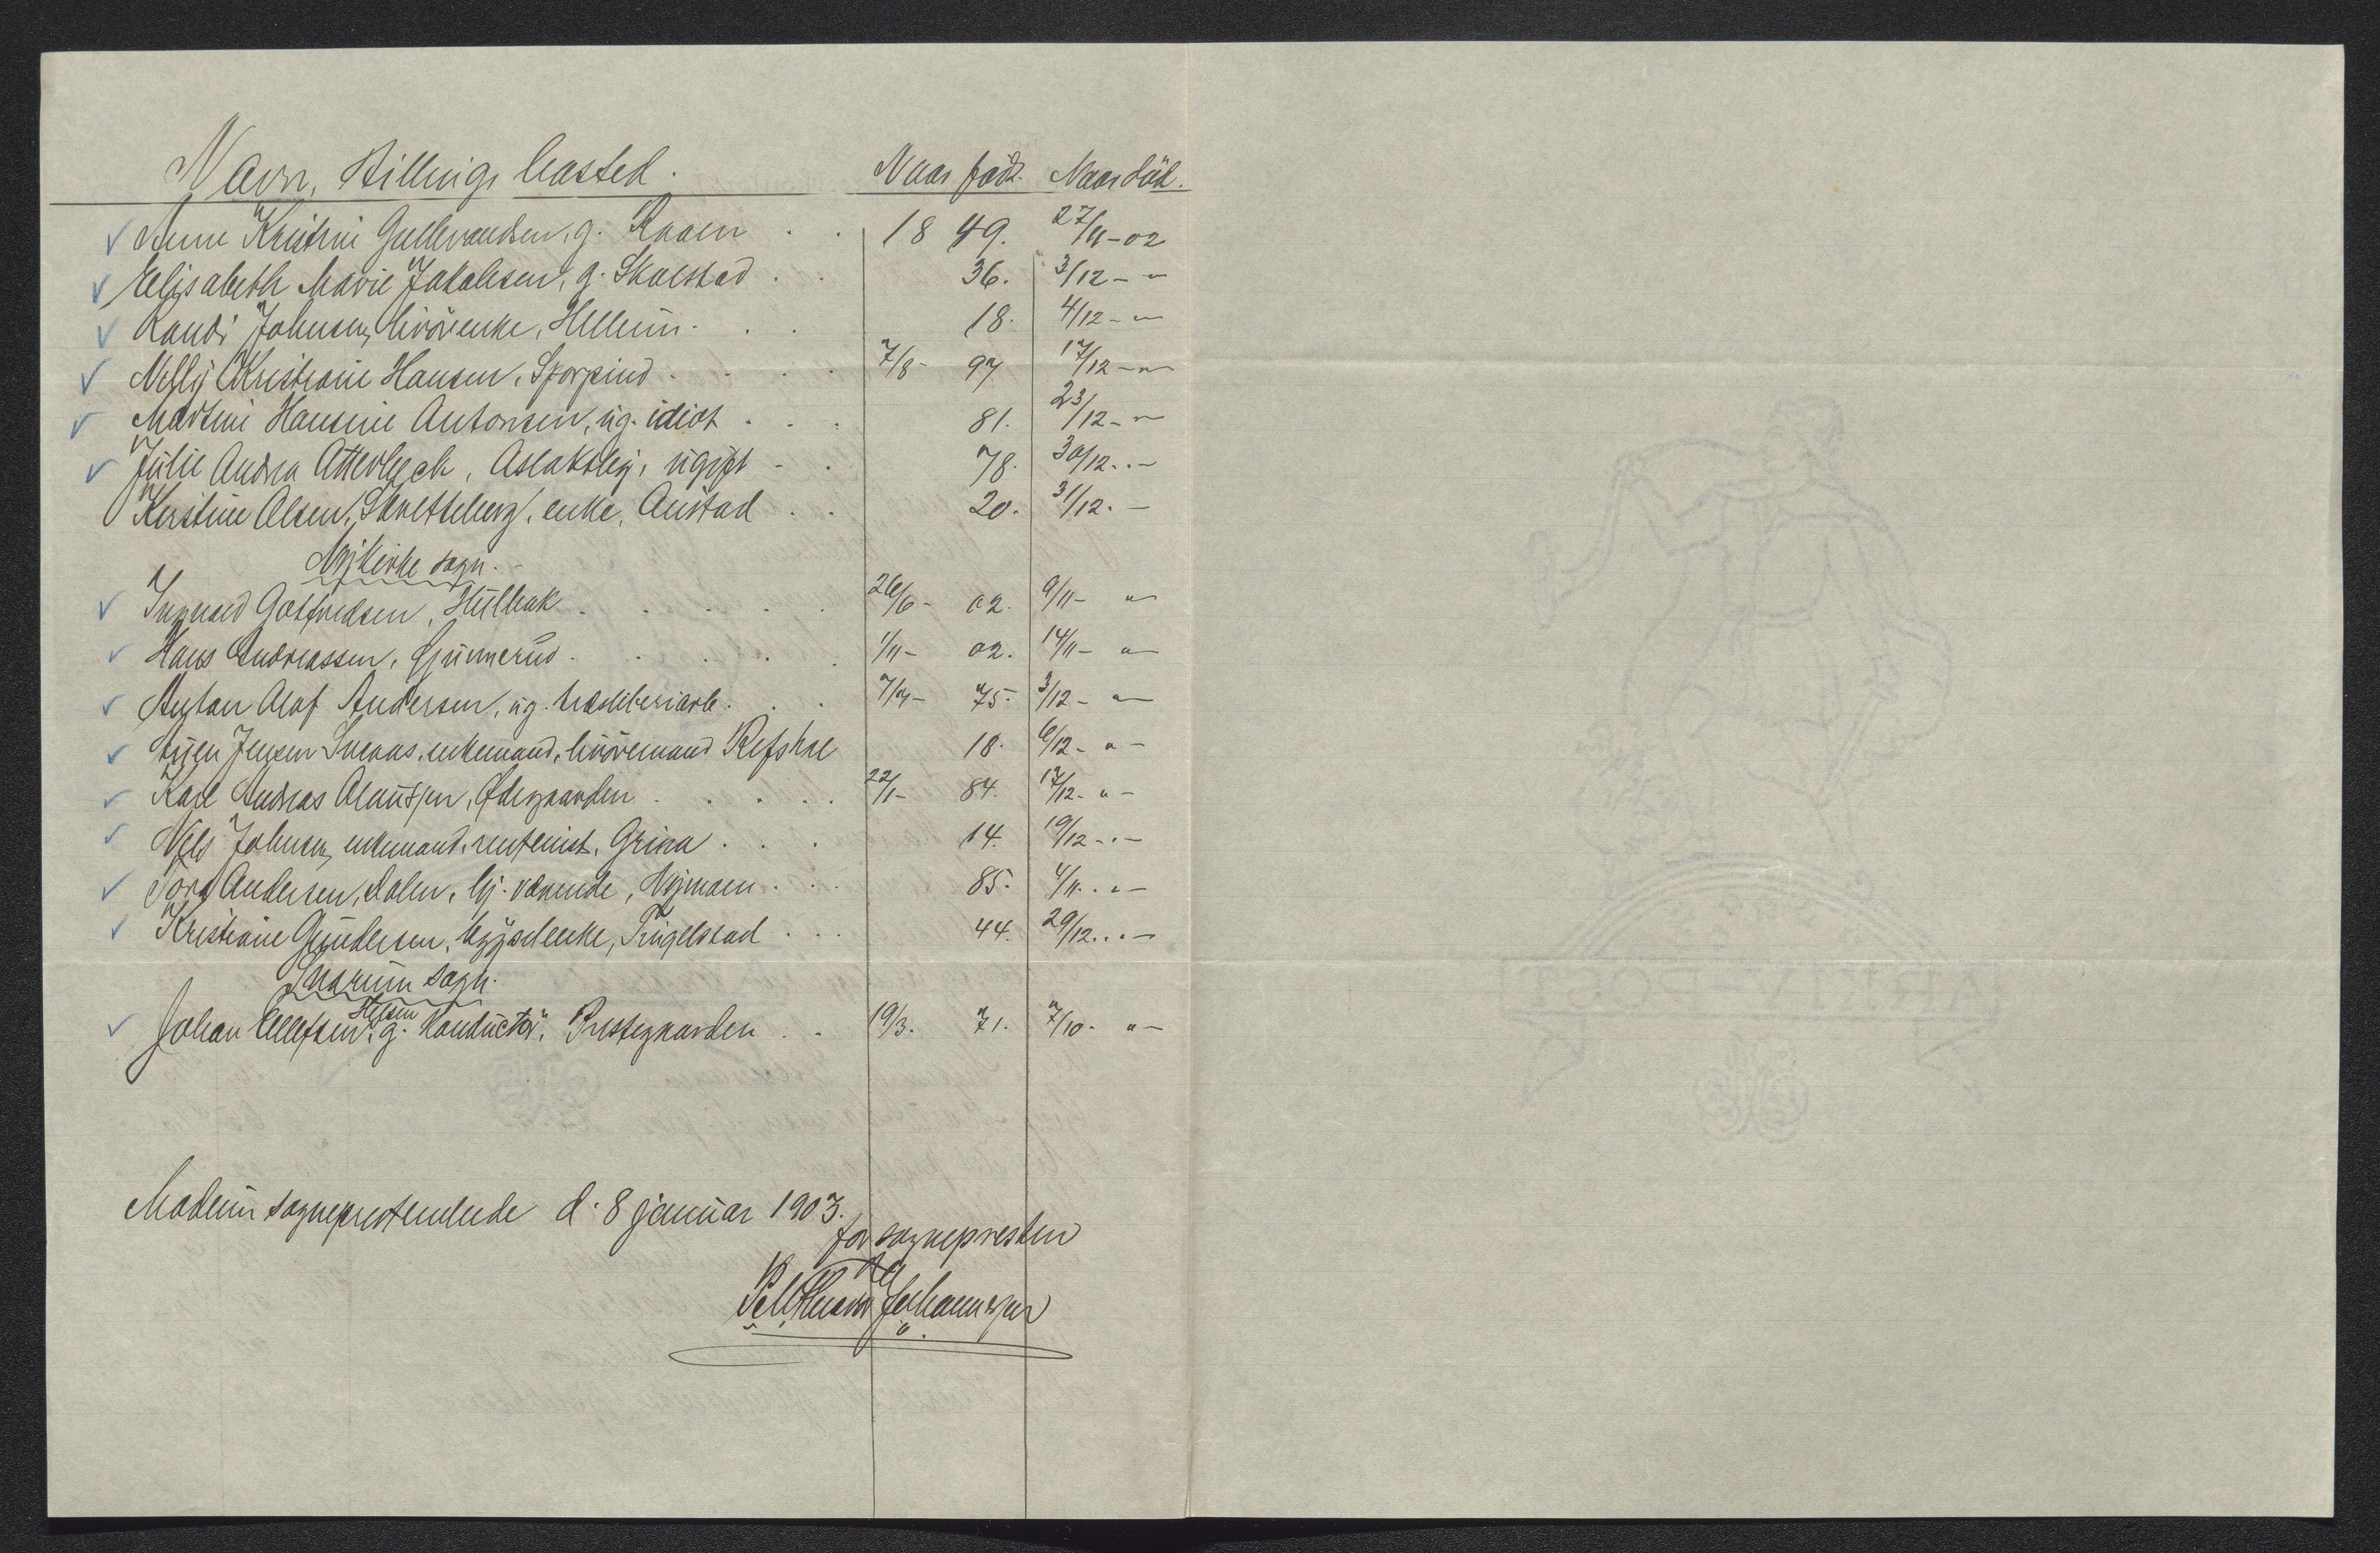 Navn, Stilling, bosted. Naar født. Naar död.
Anne Kristine Gulbrandsen, g. Raaen . . 1849. 27/11-02
Elisabeth Marie Jakobsen, g. Skolstad . . 36. 3/12- "
Randi Johnsen, livörenke, Hellum . . . 18. 4/12- "
Nelly Kristiane Hansen, Sporpind . . . . 7/8- 97 17/12- "
Martine Hansine Antonsen, ug. idiot . . . 81. 23/12- "
Julie Andrea Atterbech, Aslaksby, ugift - . 78. 30/12 . . -
Kristine Olsen, Skretteberg, enke, Austad . . 20. 31/12. -
Nykirke sogn.
Ingvald Gotfredsen, Hulbak . . . . . 26/6- 02. 9/11- "
Hans Andreassen, Gunnerud . . . . . 1/11- 02. 14/11- "
Anton Olaf Andersen, ug. træsliberiarb. . . 7/7- 75. 3/12- "
Jensen Sneaas, enkemand, livöremand Refskol 18. 6/12- " -
Karl Andreas Olaussen, Ødegaarden . . . . . 22/1- 84. 17/12- " -
Nils Johnsen, enkemand, rentenist, Grina . . . 14. 19/12- " -
Tora Andersen, Dalen, hj. værende, Nymoen . . . 85. 4/11. . " -
Kristiane Gundersen, bygselenke, Tingelstad . . . 44. 29/12 . . . -
Snarum sogn.
Johan Ellefsen, g. Konductör, Prestegaarden . . 19/3. 71. 7/10- " -
Modum sogneprestembede d. 8 januar 1903.
for sognepresten
Johannessen
ARKIV-POST